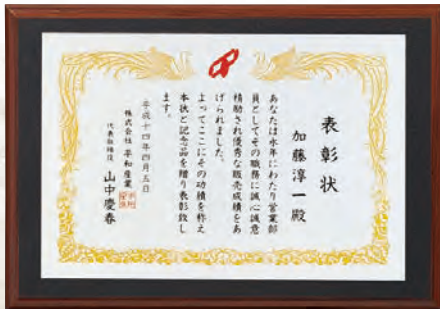 表彰状
加藤淳一殿
あなたは永年にわたり営業部
員としてその職務に誠心誠意
精励され優秀な販売成績をあ
げられました。
よってここにその功績を称え
本状と記念品を贈り表彰致し
ます。
平成十四年四月五日
株式会社 平和産業
代表取締役 山中慶春